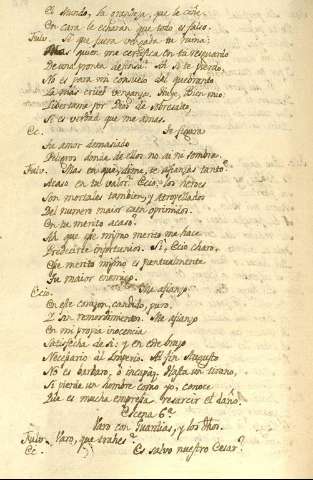 El mundo, la grandeza, que le ciñe,
En cara le echarán que todo es falso.
Fulv. Si que fuera vengada tu ruina:
Mas quien me certifica en tu resguardo
De una pronta defensa? Ah si te pierdo,
No es para mi consuelo del quebranto
La mas cruel venganza. Huye, Bien mio:
Libertarme por Dios de
Si es verdad que me amas.
Ec. Te figura
Tu amor demasiado
Peligros donde de ellos no ai ni sombra.
Fulv. Mas en que, dime, te afianzas tanto?
Acaso en tu valor? Ecio, los héroes
Son mortales tambien, y atropellados
Del numero maior caen oprimidos.
En tu merito acaso?
Ah que ese mismo merito me hace
Predecirte infortunios. Si, Ecio charo,
Ese merito mismo es puntualmente
Tu maior enemigo.
Ecio. Me afianzo
En este corazon, candido, puro,
I sin remordimientos. Me afianzo
En mi propia inocencia
Satisfecha de si; y en este brazo
Necesario al Imperio. Al fin Augusto
No es barbaro, ó incapaz. Hasta un tirano,
Si pierde un hombre como yo, conoce
Que es mucha empresa resarcir el daño.
Escena 6ª
Varo con Guardias, y los dhos.
Fulv. Varo, que trahes?
Ec. Es salvo nuestro Cesar?